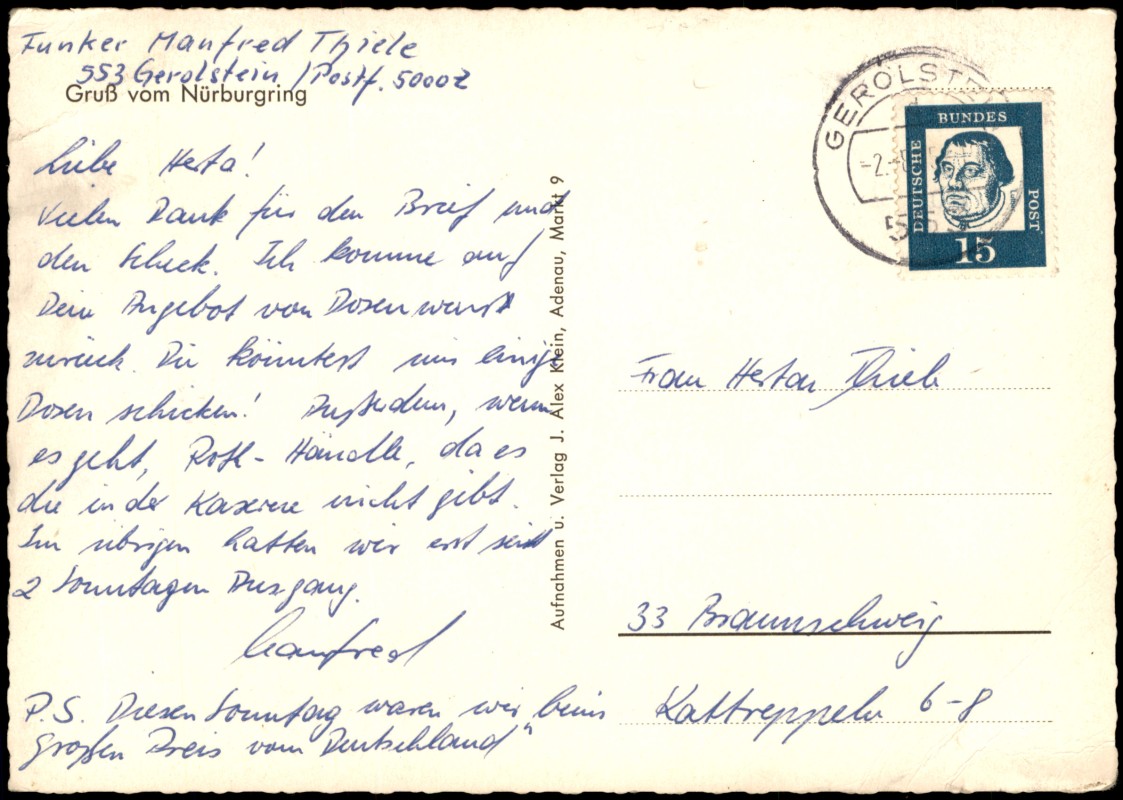 Funker Manfred Thiele
553 Gerolstein / Postf. 5000 z
Gruß vom Nürburgring
Liebe Herta!
Vielen Dank für den Brief und
den Scheck. Ich komme auf
Dein Angebot von Dosenwurst
zurück. Du könntest mir einige
Dosen schicken! Außerdem, wenn
es geht, Roth-Händle, da es
die in der Kaserne nicht gibt.
Im übrigen hatten wir erst seit
2 Sonntagen Ausgang.
Manfred
P.S. Diesen Sonntag waren wir beim
großen Preis vom Deutschland"
Aufnahmen u. Verlag J. Alex Klein, Adenau, Markt 9
GEROLSTEIN
-2.
DEUTSCHE
BUNDES
POST
15
Frau Herta Thiele
33 Braunschweig
Kattreppeln 6-8